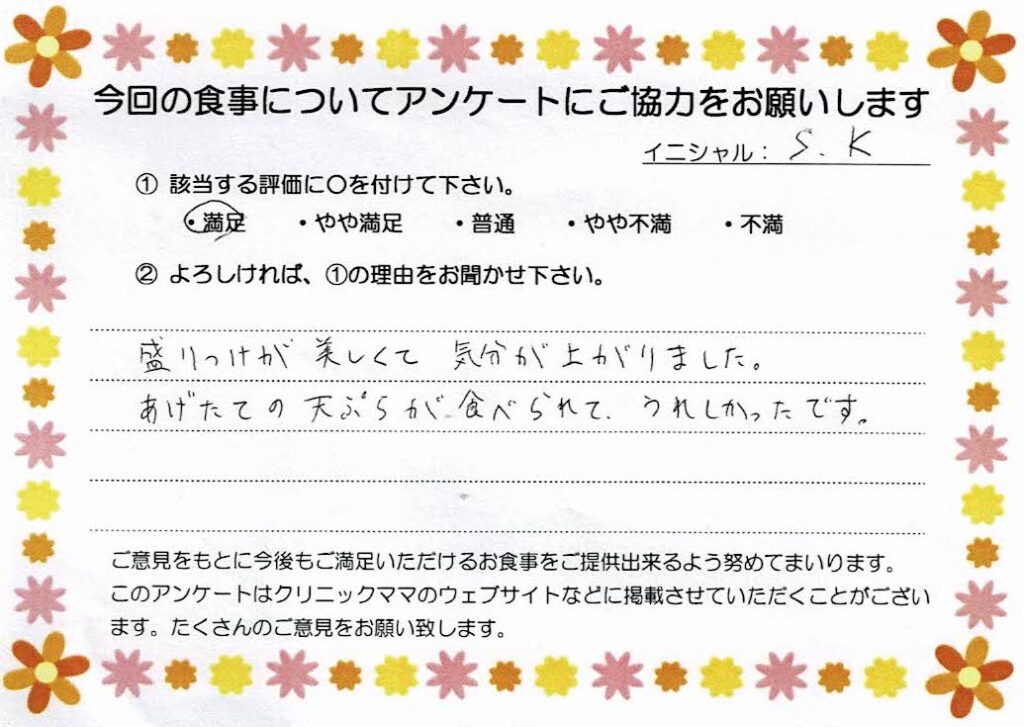 今回の食事についてアンケートにご協力をお願いします
イニシャル： S. K
① 該当する評価に〇を付けて下さい。
・満足 ・やや満足 ・普通 ・やや不満 ・不満
② よろしければ、①の理由をお聞かせ下さい。
盛りつけが 美しくて 気分が上がりました。
あげたての 天ぷらが 食べられて、うれしかったです。
ご意見をもとに今後もご満足いただけるお食事をご提供出来るよう努めてまいります。
このアンケートはクリニックママのウェブサイトなどに掲載させていただくことがござい
ます。たくさんのご意見をお願い致します。